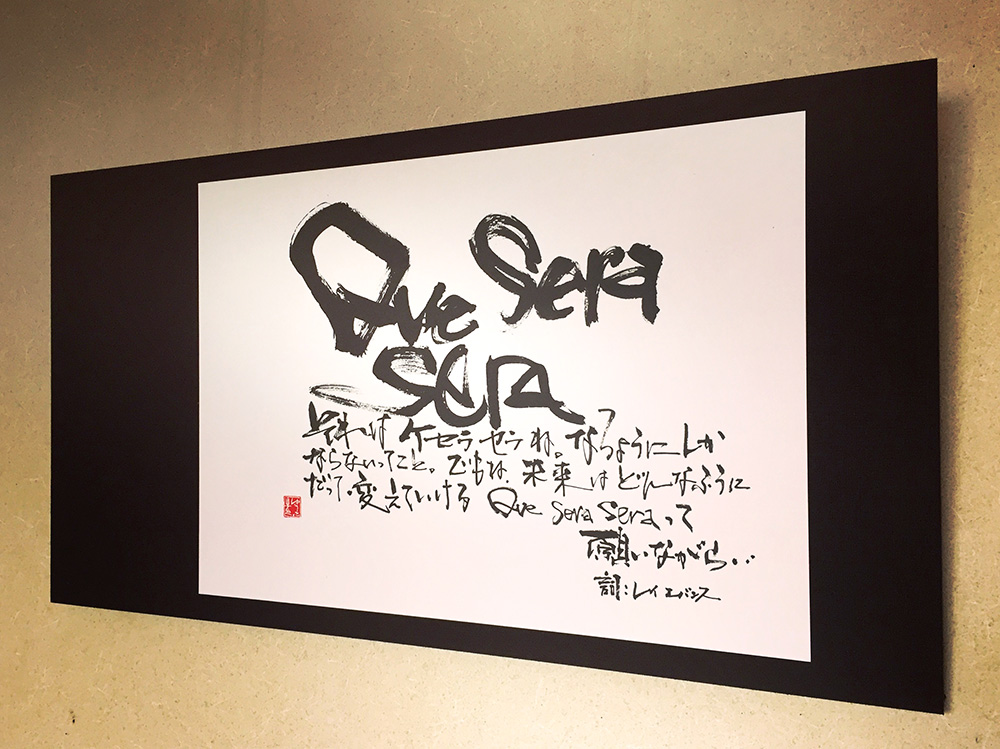 Que Sera
Sera
は ケ・セラ セラ ね。なるようにしか
ならないってこと。でもね、未来は どんなふうに
だって変えていける Que Sera Sera って
願いながら‥
詞:レイ エバンス